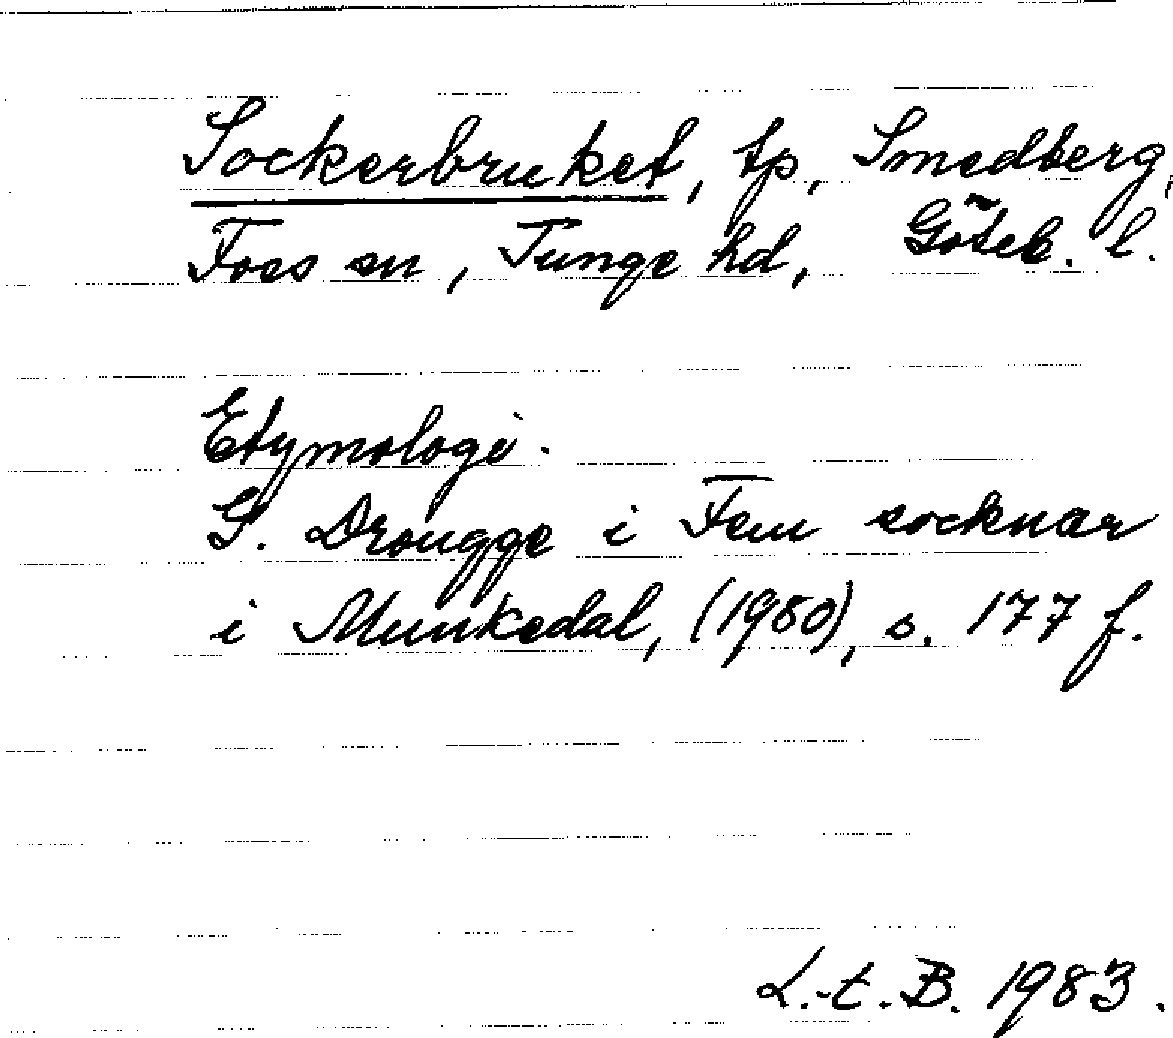 Sockerbruket, tp, Smedberg,
Foss sn, Tunge hd, Göteb. l.
Etymologi.
G. Drougge i Fem socknar
i Munkedal, (1980), s. 177 f.
L.-t. B. 1983.